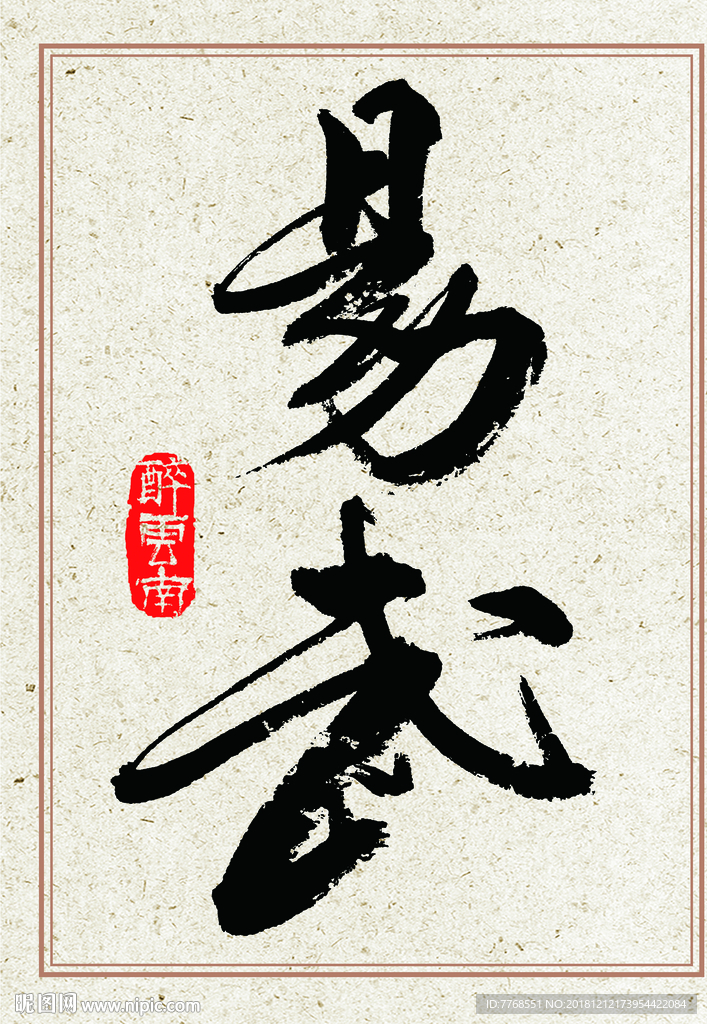 易武
醉雲南
昵图网 www.nipic.com
ID:7768551 NO:20181212173954422084